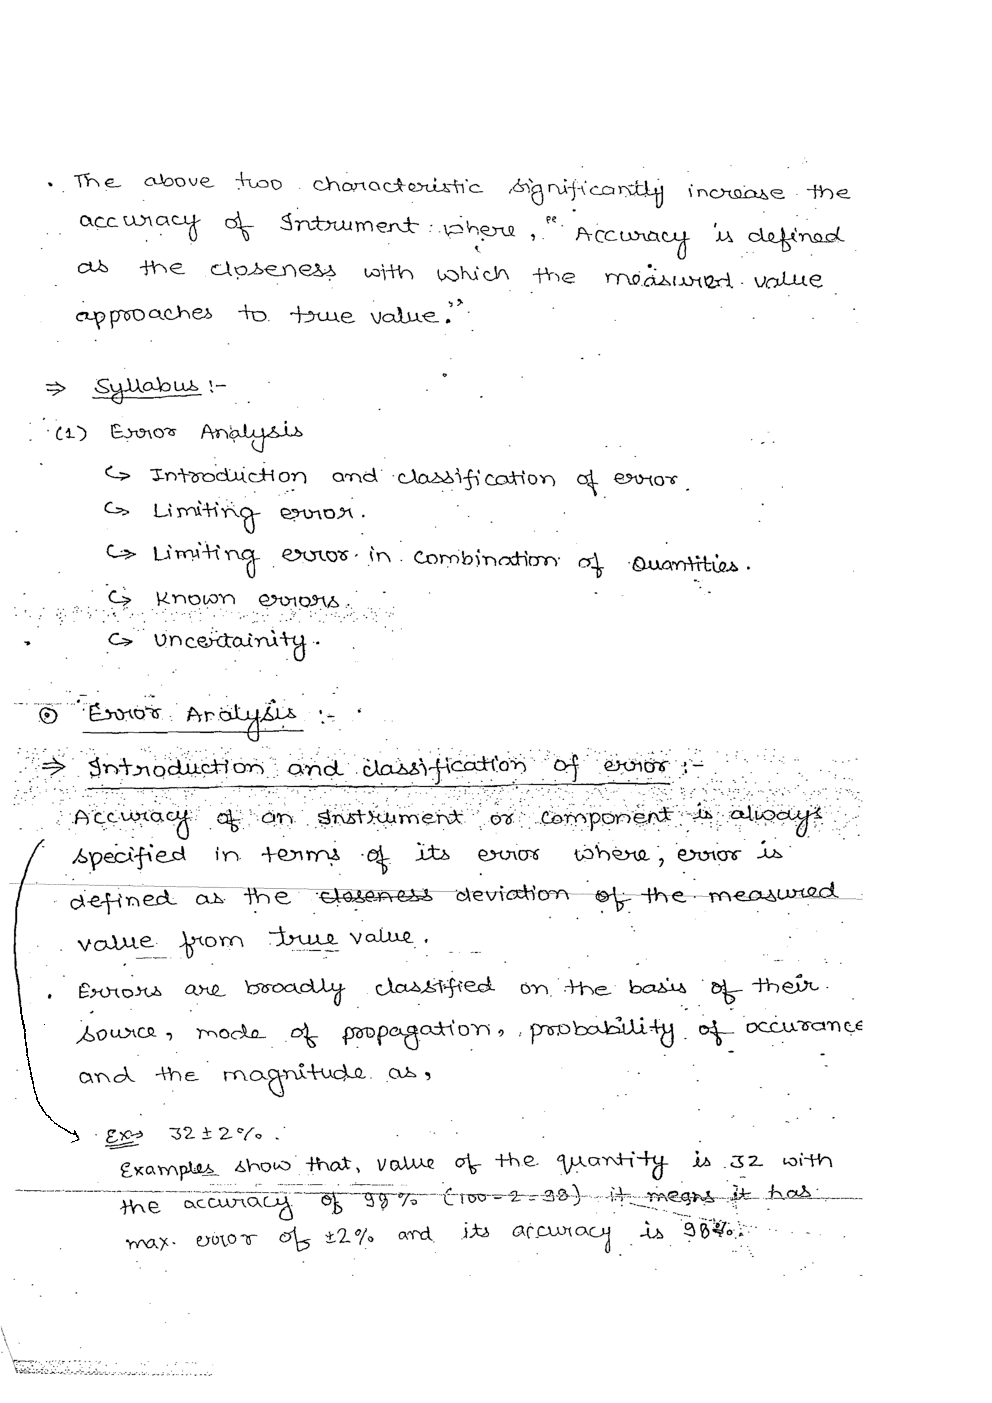 . The above two characteristic significantly increase the
accuracy of Intrument where, "Accuracy is defined
as the closeness with which the measured value
approaches to true value."
⇒ Syllabus :-
(1) Error Analysis
↳ Introduction and classification of error.
↳ Limiting error.
↳ Limiting error in combination of Quantities.
↳ Known errors.
↳ Uncertainity.
⊙ Error Analysis :-
⇒ Introduction and classification of error :-
Accuracy of an Instrument or component is always
specified in terms of its error where, error is
defined as the closeness deviation of the measured
value from true value.
. Errors are broadly classified on the basis of their
source, mode of propagation, probability of occurance
and the magnitude as,
Ex→ 32 ± 2%.
Examples show that, value of the quantity is 32 with
the accuracy of 98% (100-2=98) it means it has
max. error of ±2% and its accuracy is 98%.